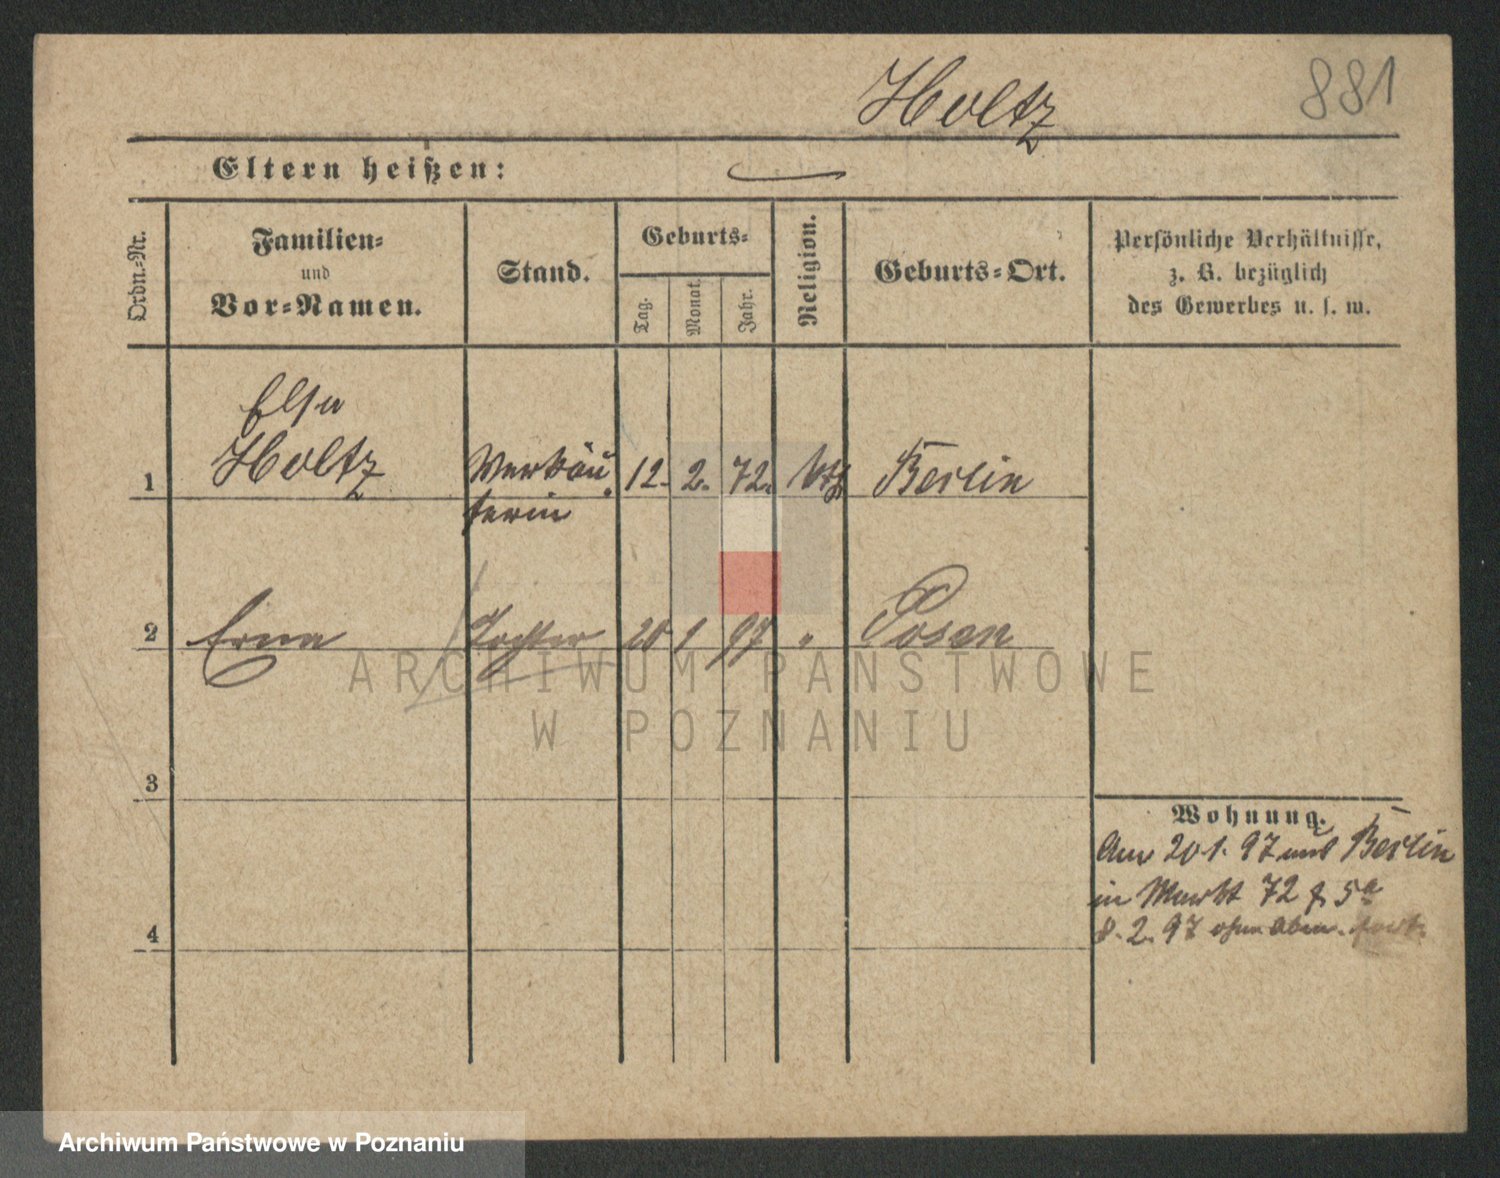 Holtz
881
Eltern heißen:
Ordn.-Nr.
Familien-
und
Vor-Namen.
Stand.
Geburts-
Tag.
Monat.
Jahr.
Religion.
Geburts-Ort.
Persönliche Verhältnisse,
z. B. bezüglich
des Gewerbes u. s. w.
Elsa
1 Holtz Verkäu 12. 2. 72. Berlin
ferin
2 Erna Tochter 20 1 97 " Posen
3
4
Wohnung.
Am 20 1. 97 aus Berlin
in Markt 72
8. 2. 97 ohne Abm. fort.
ARCHIWUM PAŃSTWOWE
W POZNANIU
Archiwum Państwowe w Poznaniu